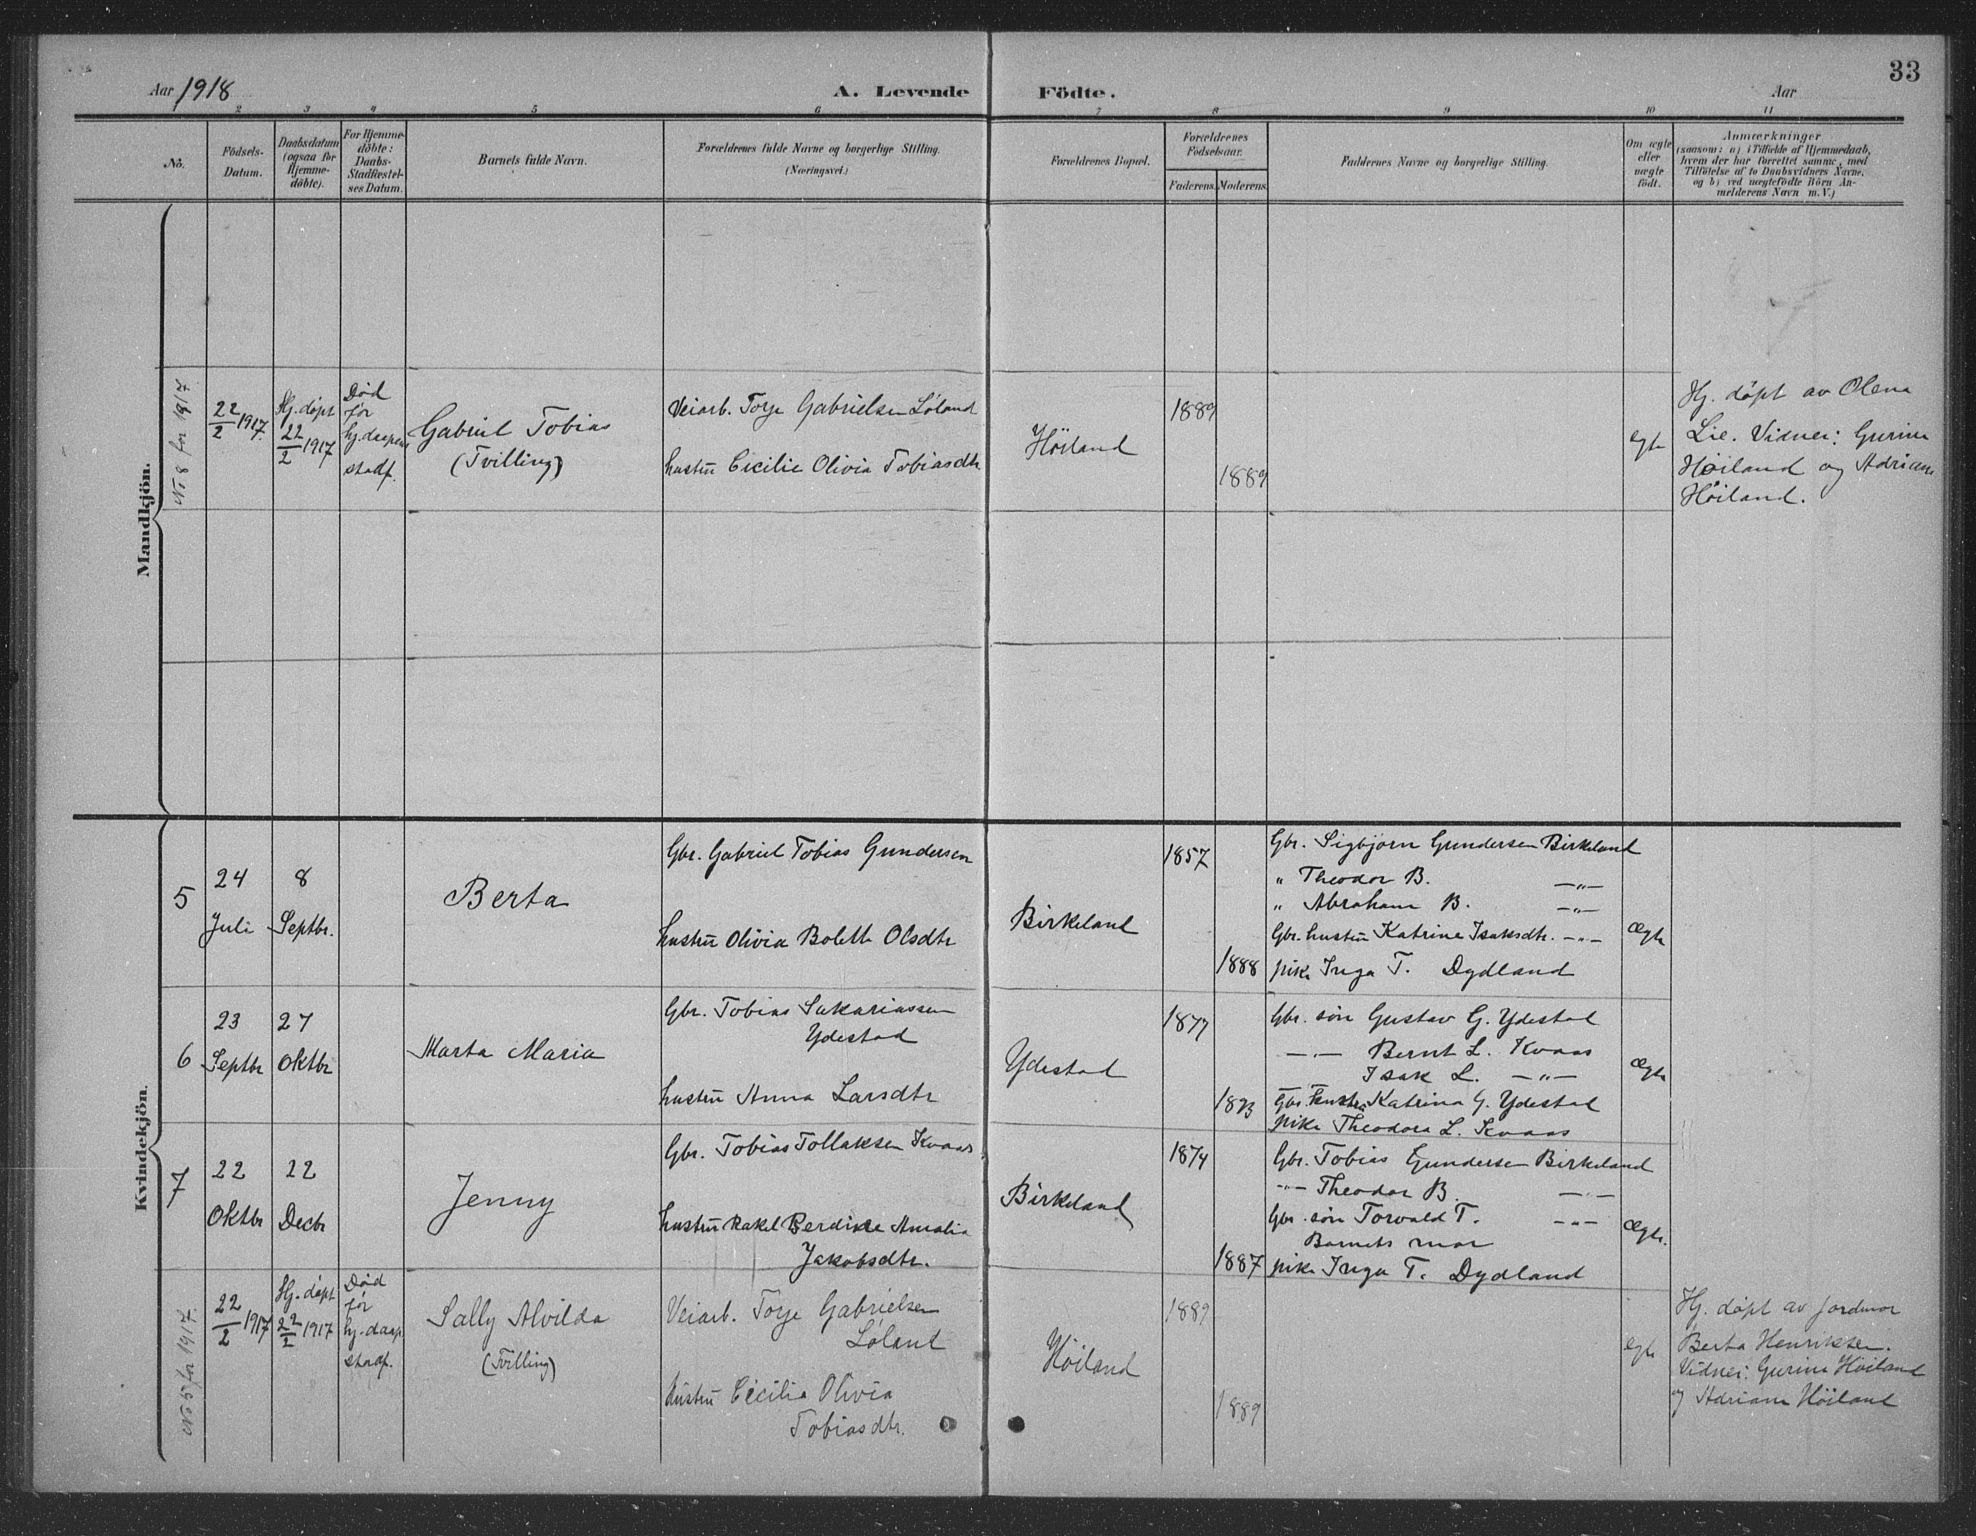 33
Aar 1918
A. Levende Födte.
Aar
2 3 4 5 6 7 8 9 10 11
No.
Födsels-
Datum.
Daabsdatum
(ogsaa för
Hjemme-
döbte).
For Hjemme-
döbte:
Daabs-
Stadfæstel-
ses Datum.
Barnets fulde Navn.
Forældrenes fulde Navne og borgerlige Stilling.
(Næringsvei.)
Forældrenes Bopæl.
Forældrenes
Födselsaar.
Faderens. Moderens.
Faddernes Navne og borgerlige Stilling.
Om ægte
eller
uægte
födt.
Anmærkninger
(saasom: a) i Tilfælde af Hjemmedaab,
hvem der har forrettet samme, med
Tilföielse af to Daabsvidners Navne,
og b) ved uægtefödte Börn An-
melderens Navn m. V.)
Mandkjön.
No 8 for 1917
22/2 1917.
Hj. døpt
22/2 1917
Død
før
hj.daapens
stadf.
Gabriel Tobias
(Tvilling)
Veiarb. Torje Gabrielsen Løland
hustru Cicilie Olivia Tobiasdtr
Höiland
1889
1889
egte
Hj. døpt av Olena
Lie. Vidner: Gurine
Höiland og Adriane
Höiland.
Kvindekjön.
5
24
Juli
8
Septbr.
Berta
Gbr. Gabriel Tobias Gundersen
hustru Olivia Bolette Olsdtr
Birkeland
1857
1888
Gbr. Sigbjørn Gundersen Birkeland
" Theodor B. —"—
" Abraham B. —"—
Gbr. hustru Katrine Isaksdtr. —"—
pike Inga T. Dydland
Ægte
6
23
Septbr
27
Oktbr
Marta Maria
Gbr. Tobias Sakariassen
Ydestad
hustru Anna Larsdtr
Ydestad
1877
1893
Gbr. søn Gustav G. Ydestad
—"— Bernt L. Kvaas
Isak L. —"—
Gbr. hustru Katrina G. Ydestad
pike Theodora L. Kvaas
Ægte
7
22
Oktbr
22
Decbr
Jenny
Gbr. Tobias Tollaksen Kvaas
hustru Rakel Berdine Amalia
Jakobsdtr.
Birkeland
1874
1887
Gbr. Tobias Gundersen Birkeland
—"— Theodor B. —"—
Gbr. søn Torvald T. —"—
Barnets mor
pike Inga T. Dydland
Ægte.
No 5 for 1917.
22/2 1917
Hj. døpt
22/2 1917
Død
før
hj. daap.
stadf.
Sally Alvilda
(Tvilling)
Veiarb. Torje Gabrielsen
Løland
Hustru Cicilia Olivia
Tobiasdtr.
Höiland
1889
1889
egte
Hj. døpt av jordmor
Berta Henriksen.
Vidner: Gurine Höiland
og Adriane Höiland